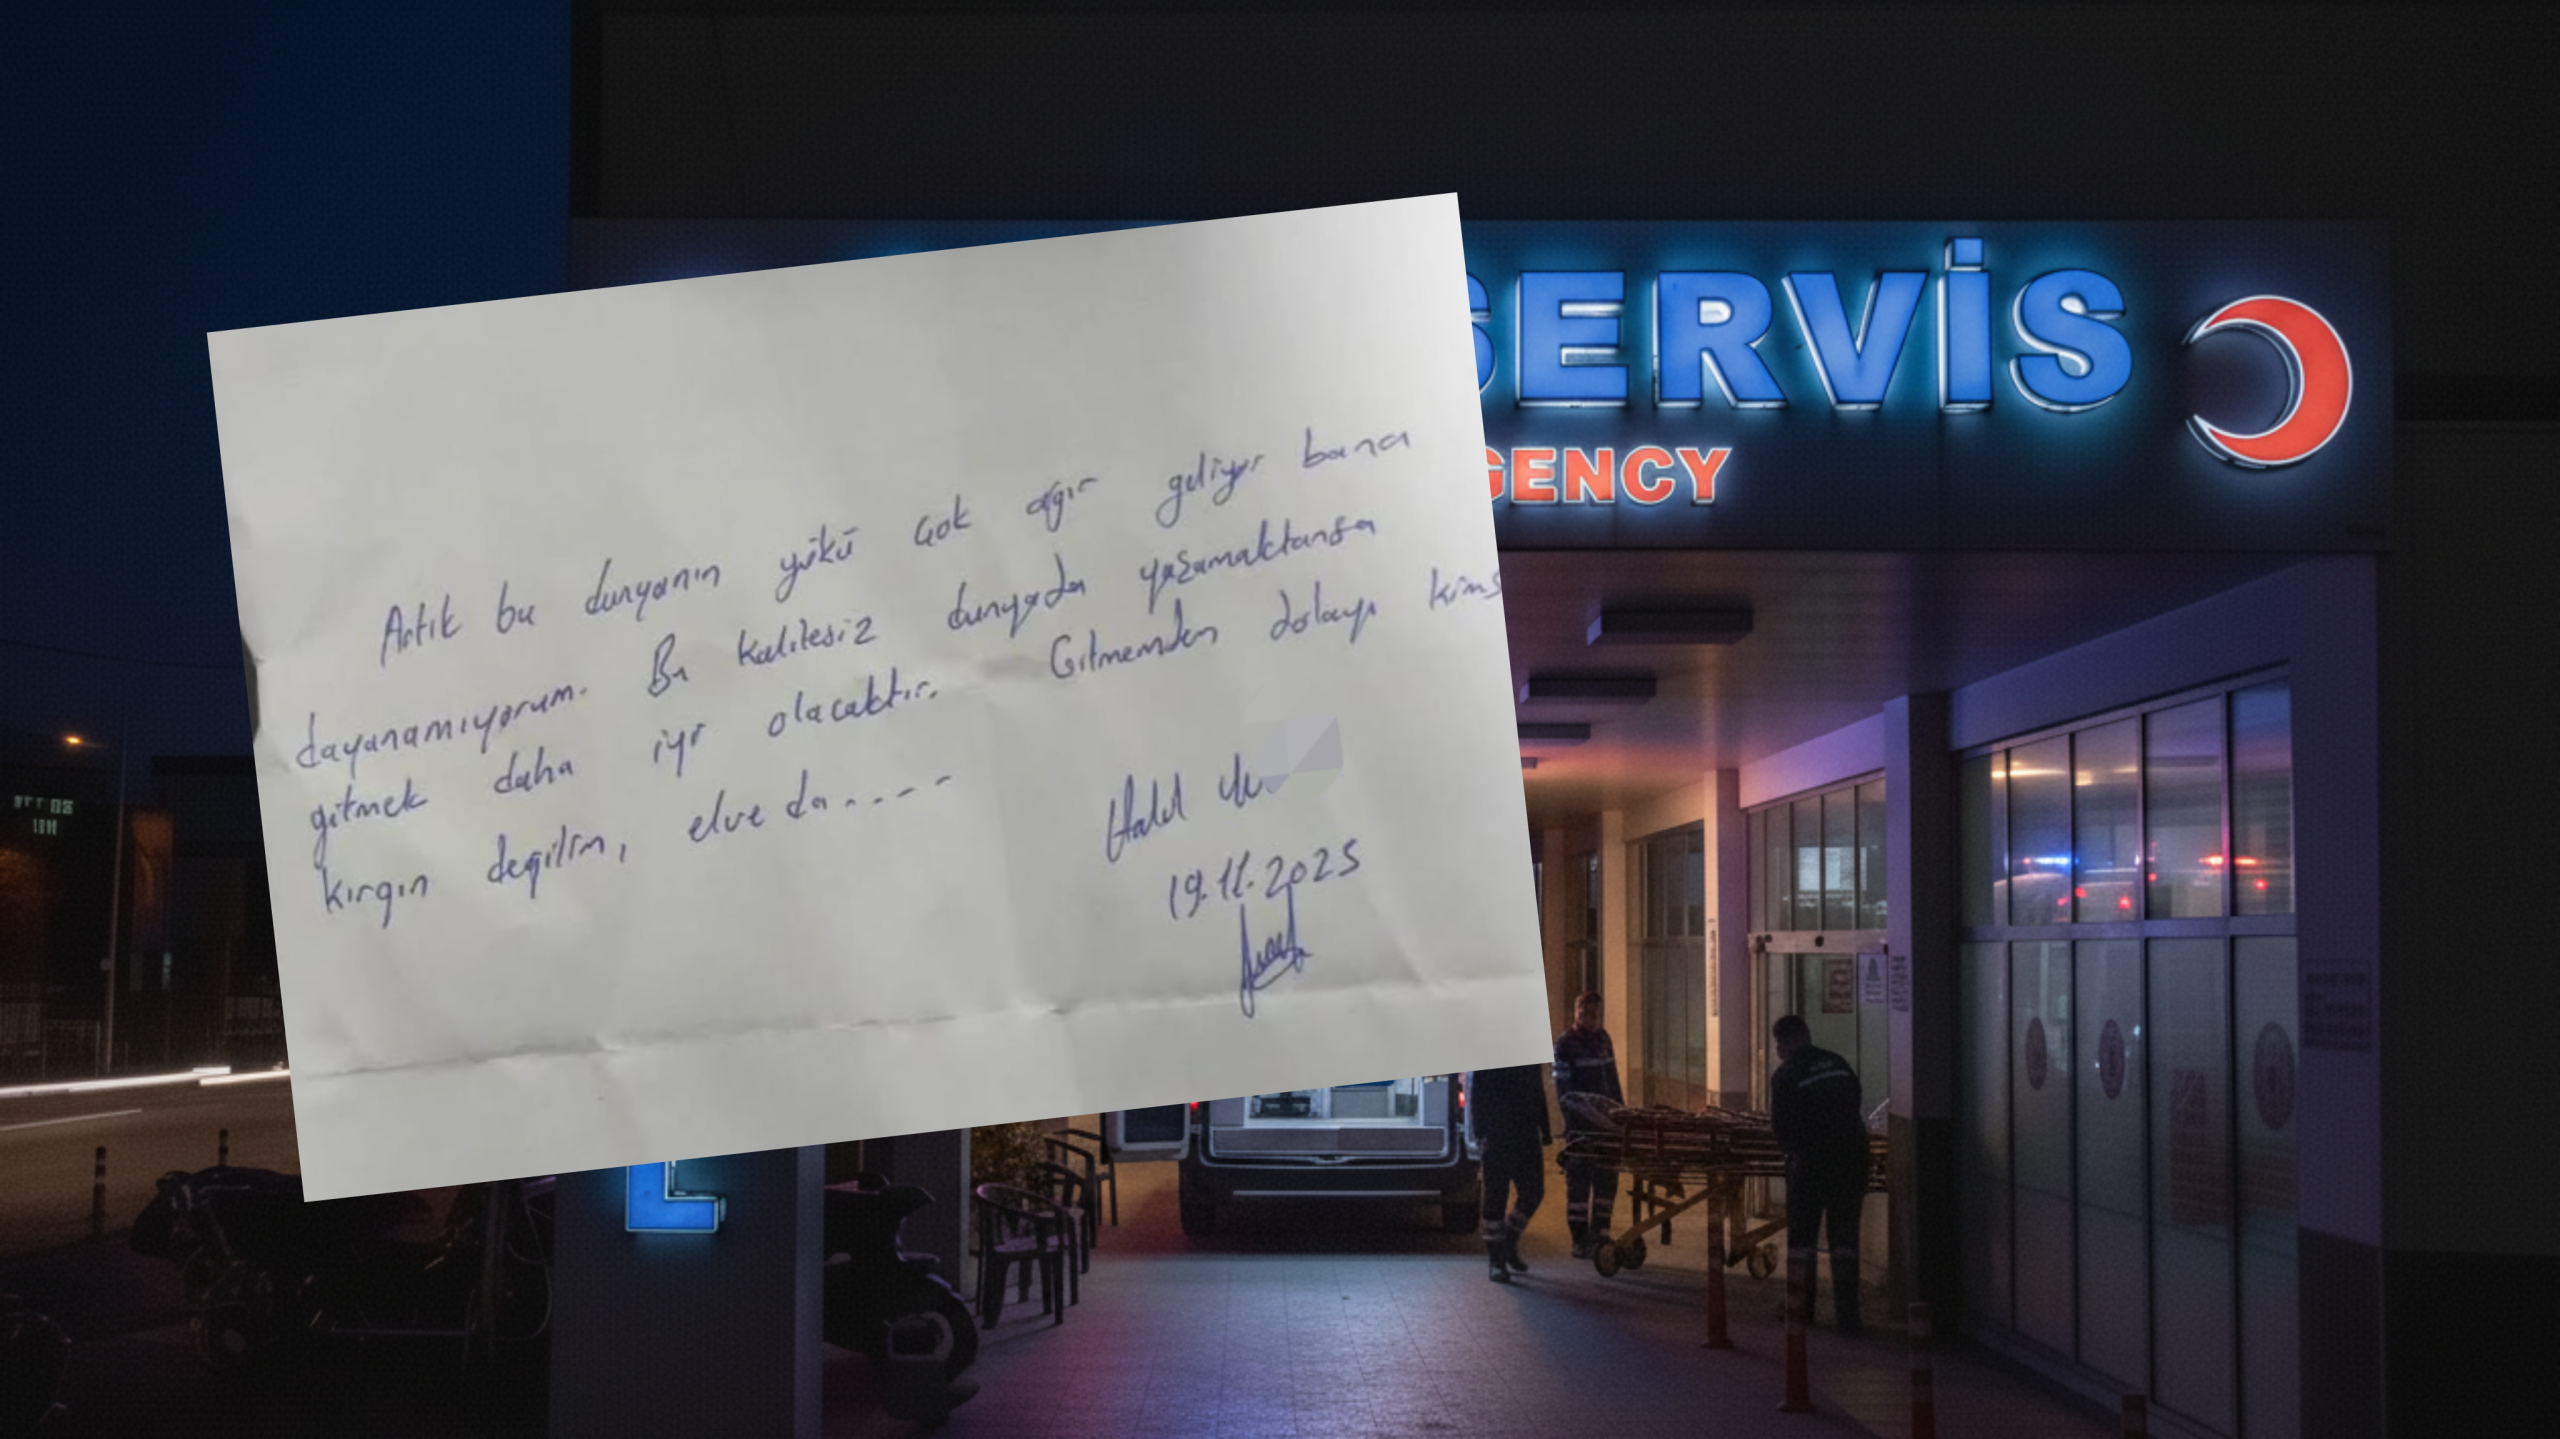 SERVİS
GENCY
Artık bu dunyanın yükü çok ağır geliyor bana
dayanamıyorum. Bu kalitesiz dunyada yaşamaktansa
gitmek daha iyi olacaktır. Gitmemden dolayı kims
kırgın değilim, elveda.....
Halil
19.11.2025
L